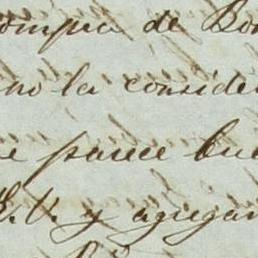 ompra de Bo
no la conside
e parece bue
S. V. y agregar